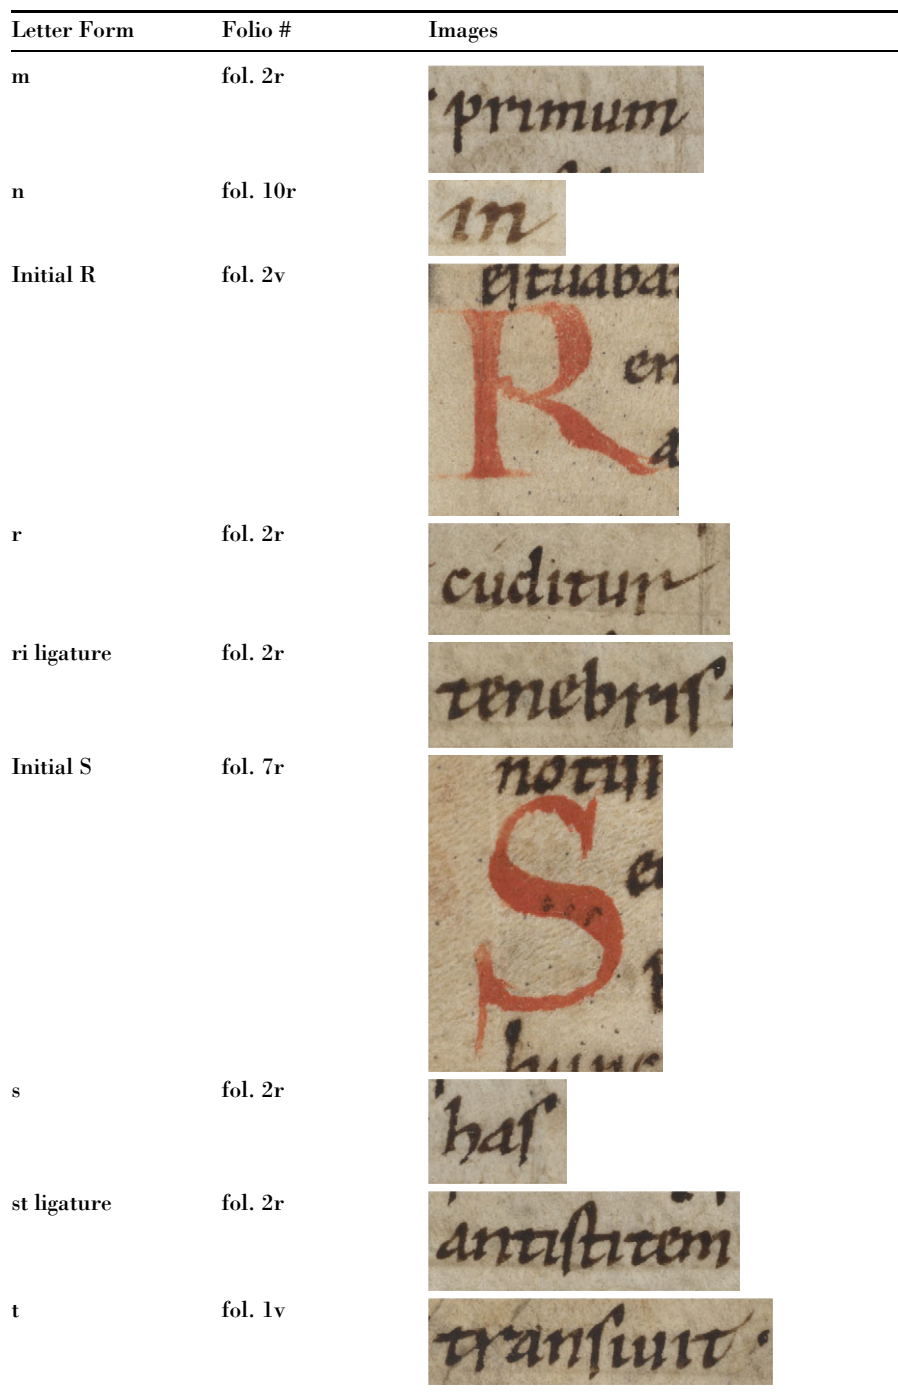 Letter Form Folio # Images
m fol. 2r primum
n fol. 10r in
Initial R fol. 2v estuaba
R en
a
r fol. 2r cuditur
ri ligature fol. 2r tenebris
Initial S fol. 7r notiss
S e
hunc
s fol. 2r has
st ligature fol. 2r antistitem
t fol. 1v transiuit.